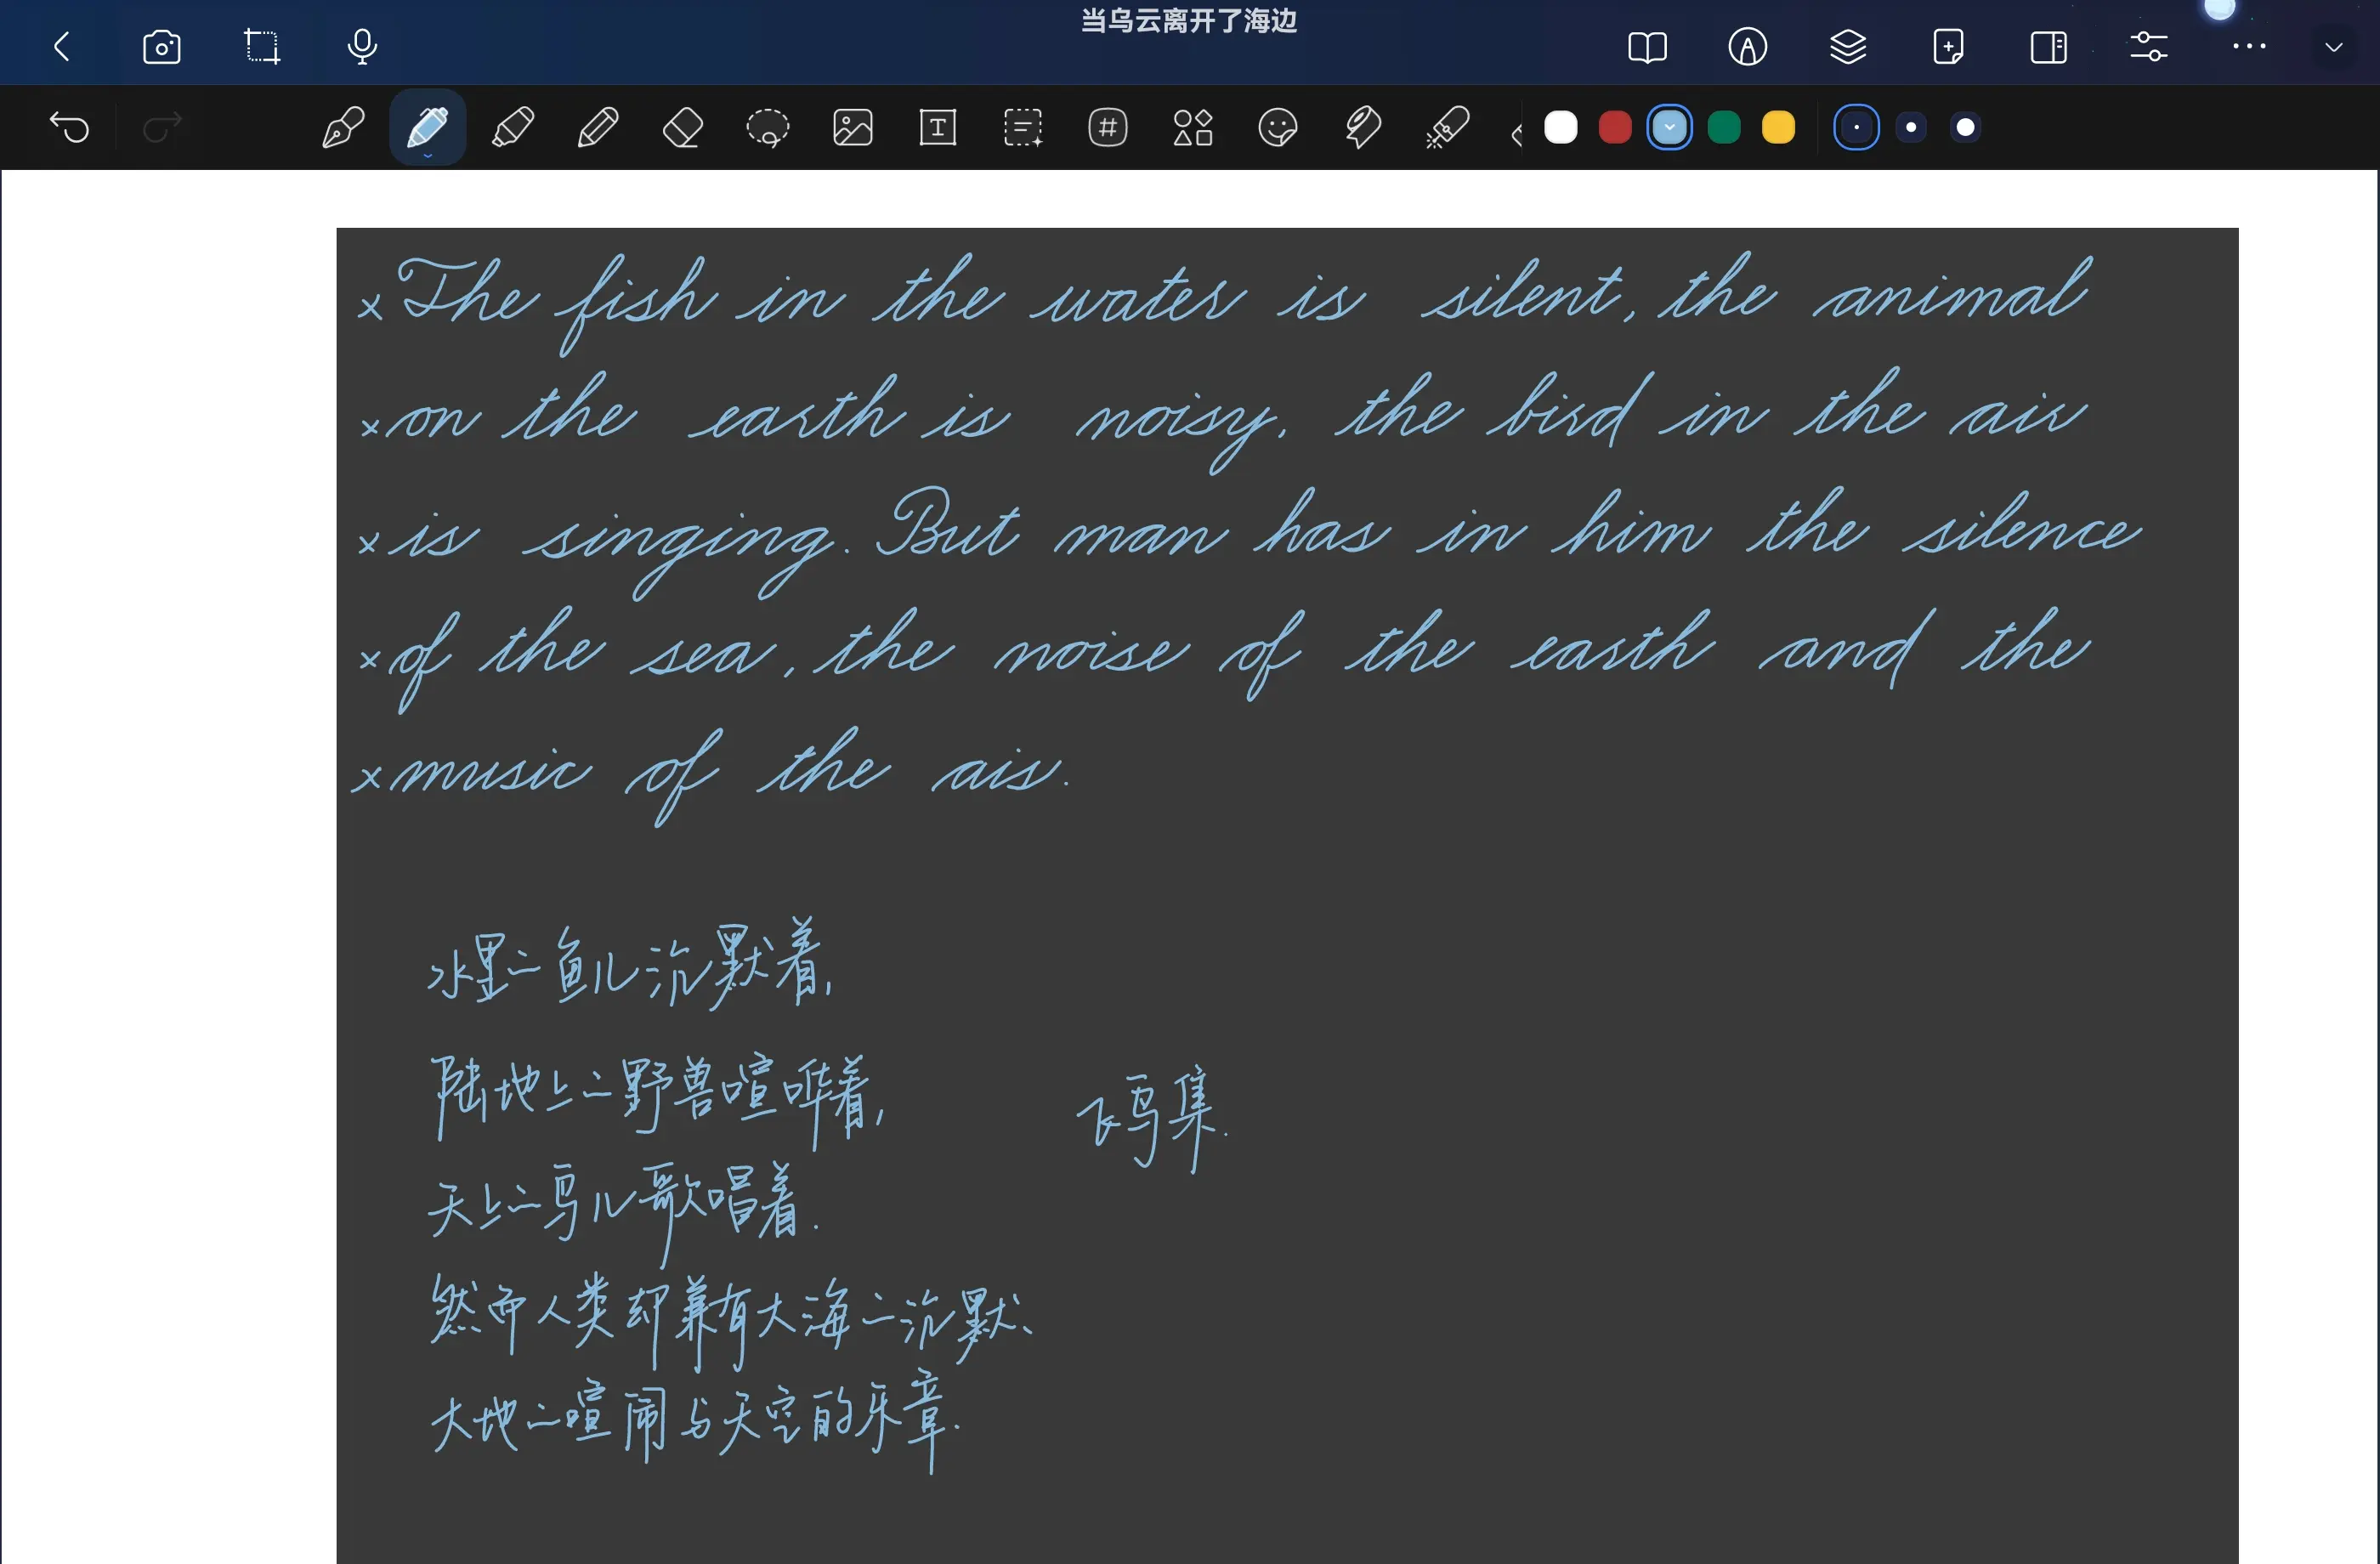 当乌云离开了海边
×The fish in the water is silent, the animal
×on the earth is noisy, the bird in the air
×is singing. But man has in him the silence
×of the sea, the noise of the earth and the
×music of the air.
水里的鱼儿沉默着,
陆地上的野兽喧哗着,
飞鸟集.
天上的鸟儿歌唱着.
然而人类却兼有大海的沉默、
大地的喧闹与天空的乐章.